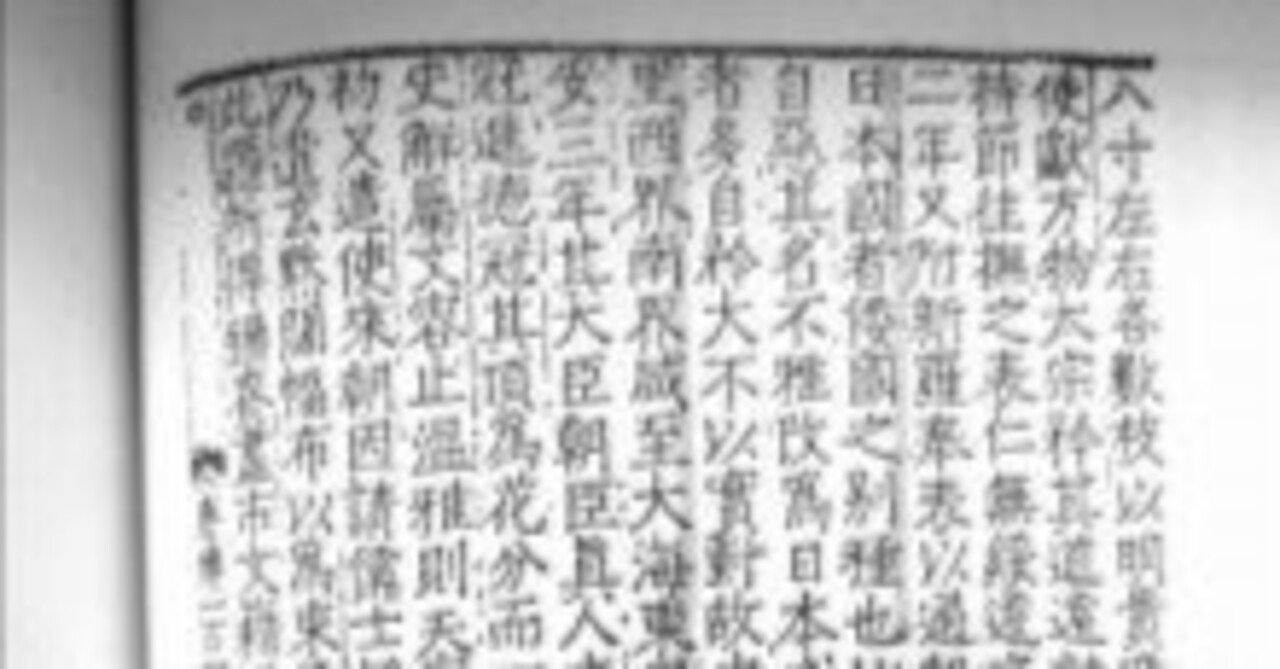 八寸左右各數枚以明貴
使獻方物太宗矜其道遠
持節往撫之表仁無綏遠
二年又附新羅奉表以通
日本國者倭國之別種也
自惡其名不雅改爲日本
者多自矜大不以實對故
里西界南界咸至大海東
安三年其大臣朝臣真人
冠進德冠其頂爲花分而
史解屬文容止溫雅則天
物又遣使來朝因請儒士
乃遺玄默闊幅布以爲束
此題所得錫賚盡市文籍